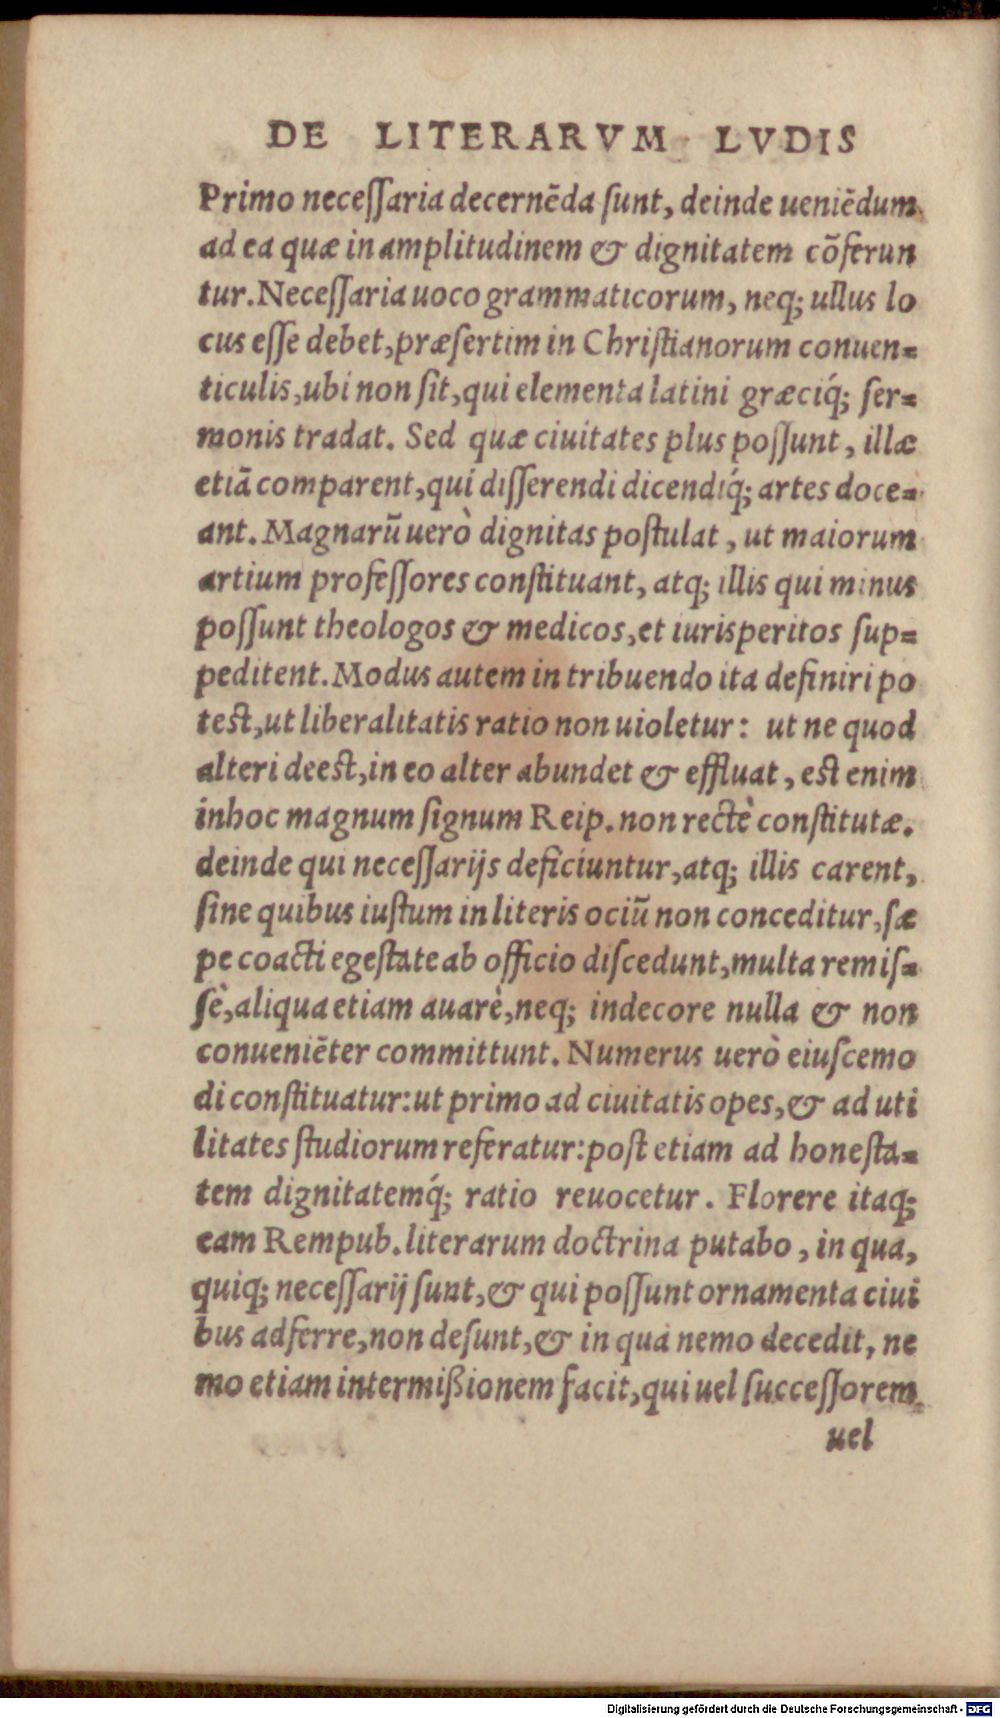 DE LITERARVM LVDIS
Primo neceſſaria decernẽda ſunt, deinde ueniẽdum
ad ea quæ in amplitudinem & dignitatem cõferun
tur. Neceſſaria uoco grammaticorum, neq; ullus lo
cus eſſe debet, præſertim in Chriſtianorum conuen-
ticulis, ubi non ſit, qui elementa latini græciq́; ſer-
monis tradat. Sed quæ ciuitates plus poſſunt, illæ
etiã comparent, qui diſſerendi dicendiq́; artes doce-
ant. Magnarũ uerò dignitas poſtulat, ut maiorum
artium profeſſores conſtituant, atq; illis qui minus
poſſunt theologos & medicos, et iurisperitos ſup-
peditent. Modus autem in tribuendo ita definiri po
teſt, ut liberalitatis ratio non uioletur: ut ne quod
alteri deeſt, in eo alter abundet & effluat, eſt enim
inhoc magnum ſignum Reip. non rectè conſtitutæ.
deinde qui neceſſarijs deficiuntur, atq; illis carent,
ſine quibus iuſtum in literis ociũ non conceditur, ſæ
pe coacti egeſtate ab officio diſcedunt, multa remiſ-
ſè, aliqua etiam auarè, neq; indecore nulla & non
conueniẽter committunt. Numerus uerò eiuſcemo
di conſtituatur: ut primo ad ciuitatis opes, & ad uti
litates ſtudiorum referatur: poſt etiam ad honeſta-
tem dignitatemq́; ratio reuocetur. Florere itaq;
eam Rempub. literarum doctrina putabo, in qua,
quiq; neceſſarij ſunt, & qui poſſunt ornamenta ciui
bus adferre, non deſunt, & in qua nemo decedit, ne
mo etiam intermißionem facit, qui uel ſucceſſorem
uel
Digitalisierung gefördert durch die Deutsche Forschungsgemeinschaft - DFG